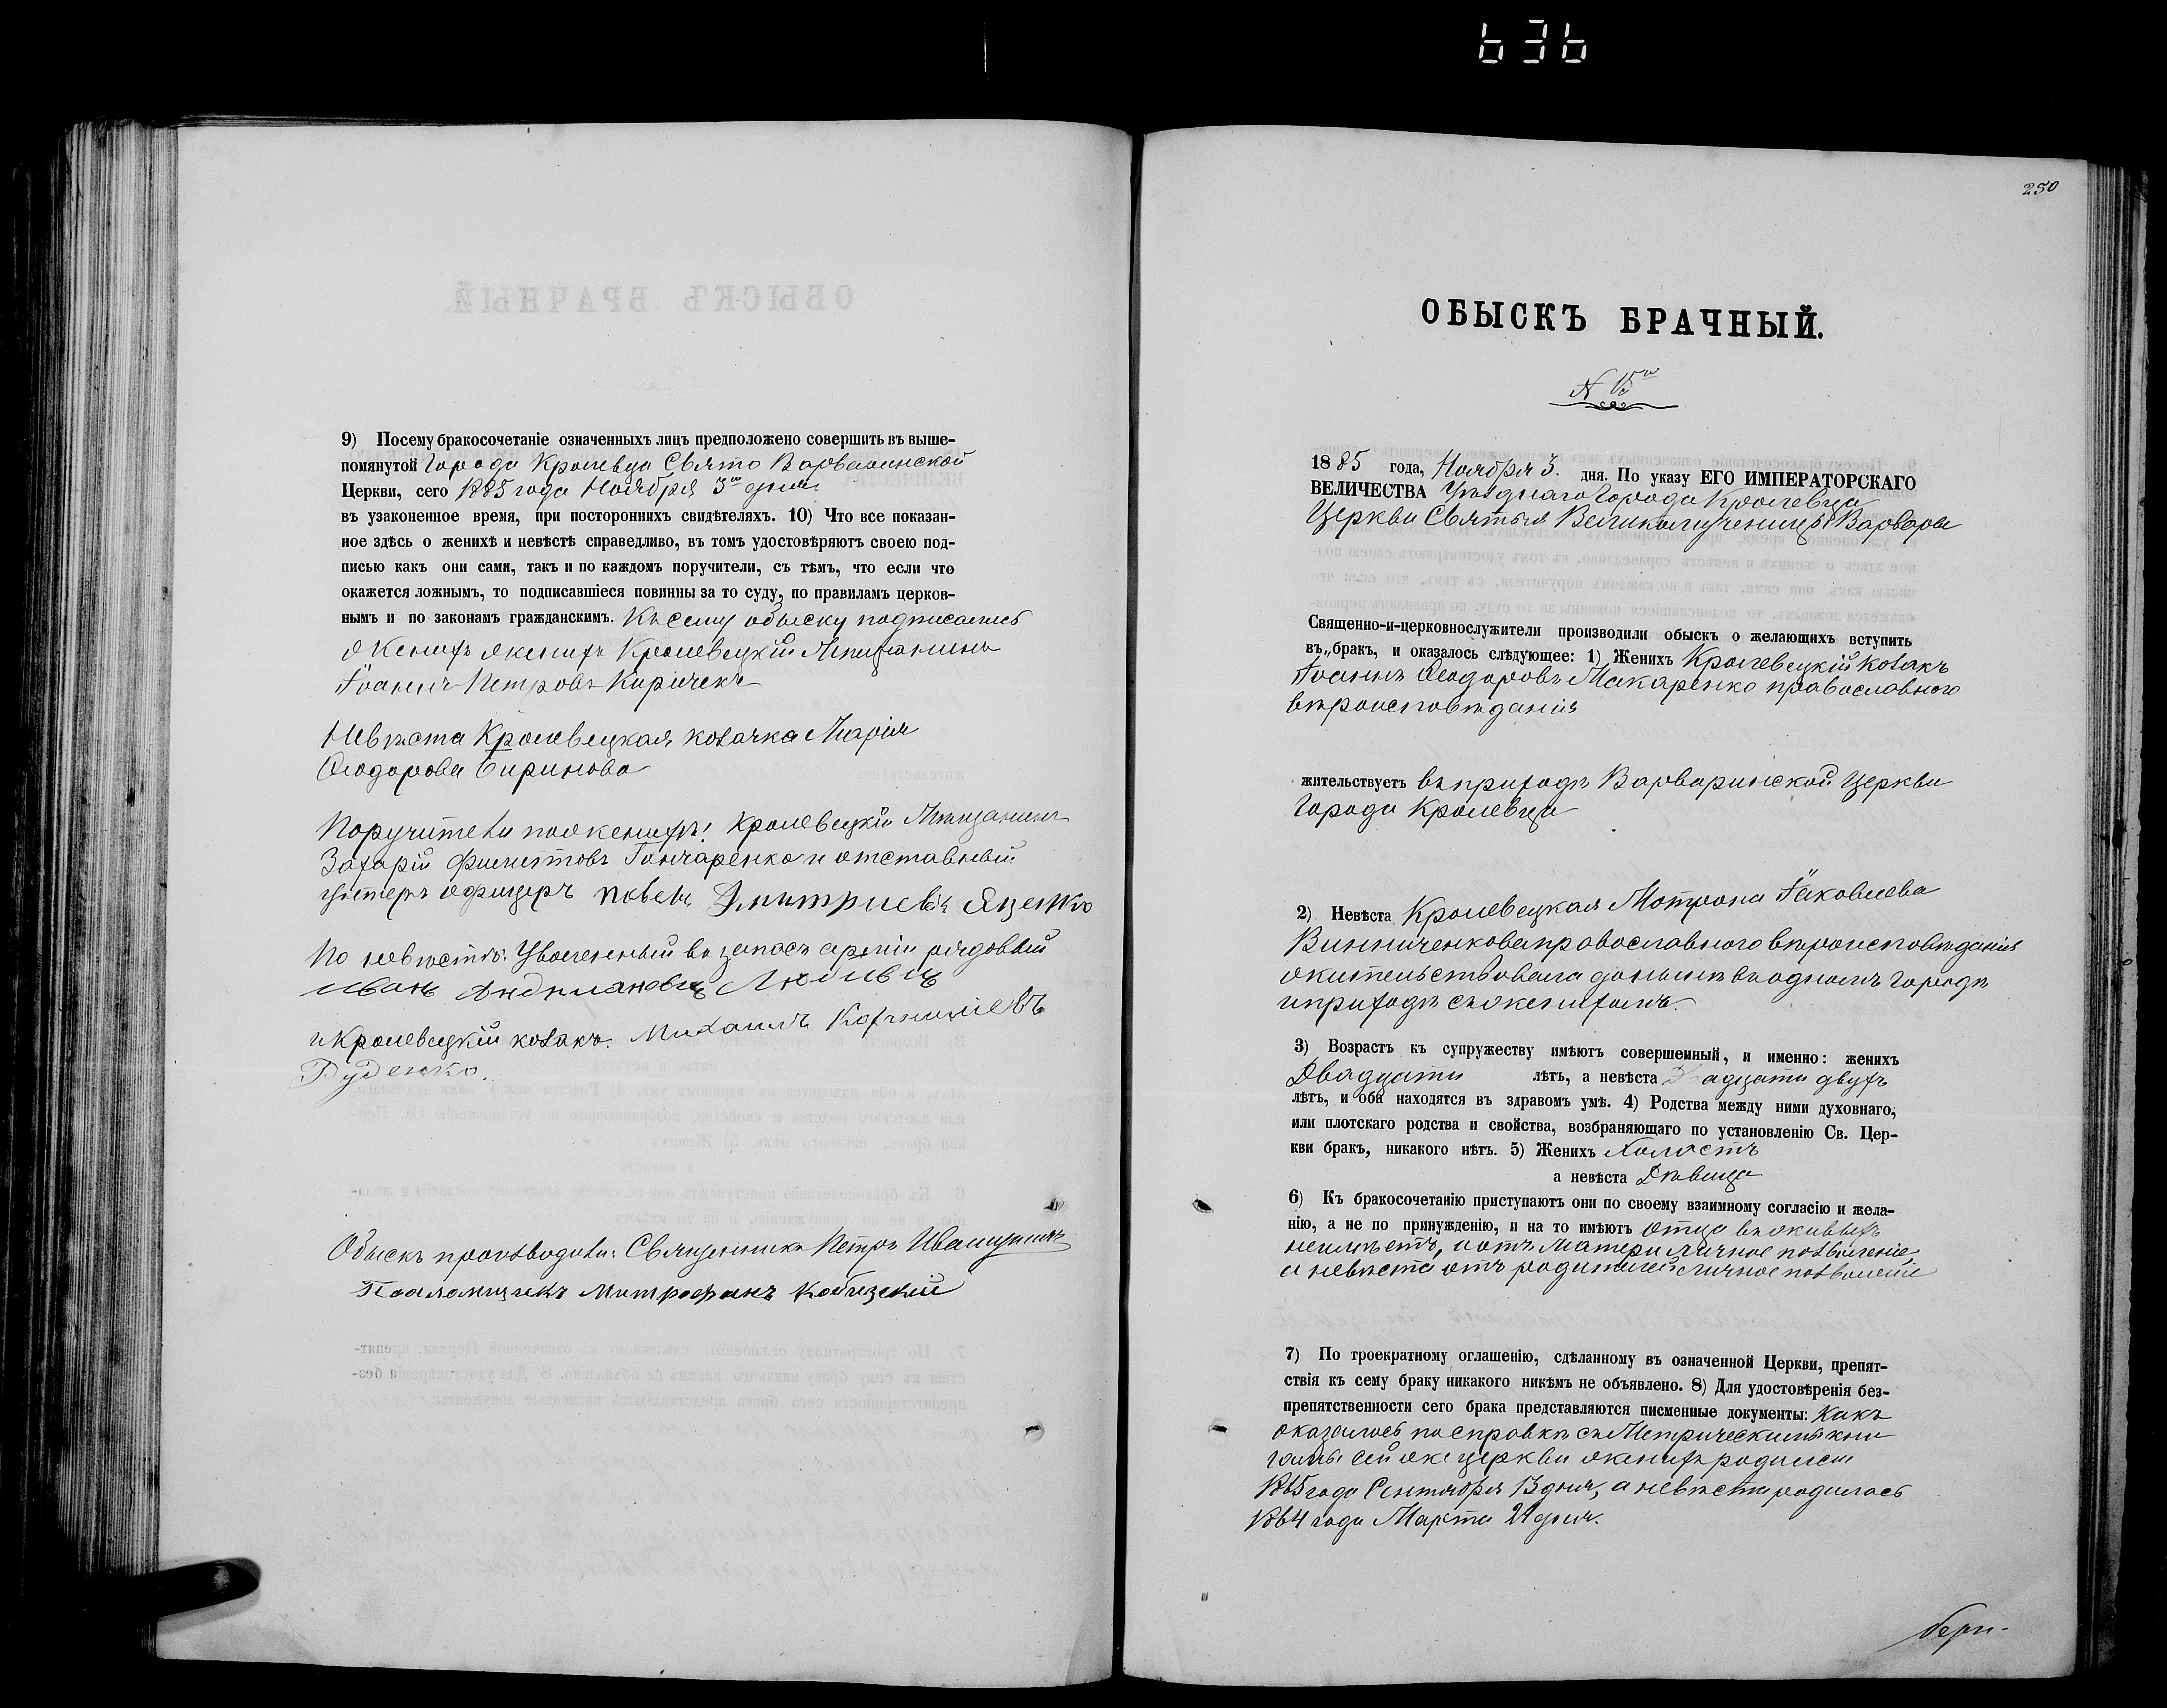 636
9) Посему бракосочетаніе означенныхъ лицъ предположено совершить въ выше-
помянутой Города Кролевца Свято Варваринской
Церкви, сего 1885 года Ноября 3го дня
въ узаконенное время, при постороннихъ свидѣтеляхъ. 10) Что все показан-
ное здѣсь о женихѣ и невѣстѣ справедливо, въ томъ удостовѣряютъ своею под-
писью какъ они сами, такъ и по каждомъ поручители, съ тѣмъ, что если что
окажется ложнымъ, то подписавшіеся повинны за то суду, по правиламъ церков-
нымъ и по законамъ гражданскимъ. Къ сему обыску подписались
женихъ Кролевецкій Мѣщанинъ
Іоаннъ Петровъ Киричекъ
Невѣста Кролевецкая козачка Марія
Ѳеодорова
Поручители по женихѣ: Кролевецкій Мѣщанинъ
Захарій Гончаренко и отставный
унтеръ офицеръ Дмитріевъ Яценко
По невѣстѣ: Уволенный въ запасъ арміи рядовый
Иванъ
и Кролевецкій козакъ. Михаилъ
Руденко.
Обыскъ производили: Священникъ Петръ
Псаломщикъ Митрофанъ
250
ОБЫСКЪ БРАЧНЫЙ.
N 15й
1885 года, Ноября 3. дня. По указу ЕГО ИМПЕРАТОРСКАГО
ВЕЛИЧЕСТВА Уѣзднаго Города Кролевца
Церкви Святыя Великомученицы Варвары
Священно-и-церковнослужители производили обыскъ о желающихъ вступить
въ„бракъ, и оказалось слѣдующее: 1) Женихъ Кролевецкій козакъ
Іоаннъ Ѳеодоровъ Макаренко православного
вѣроисповѣданія
жительствуетъ въ приходѣ Варваринской Церкви
Города Кролевца
2) Невѣста Кролевецкая Мотрона Іаковлева
Винниченкова православного вѣроисповѣданія
жительствовала донынѣ въ одномъ городѣ
и приходѣ съ женихомъ.
3) Возрастъ къ супружеству имѣютъ совершенный, и именно: женихъ
Двадцати лѣтъ, а невѣста Двадцати двухъ
лѣтъ, и оба находятся въ здравомъ умѣ. 4) Родства между ними духовнаго,
или плотскаго родства и свойства, возбраняющаго по установленію Св. Цер-
кви бракъ, никакого нѣтъ. 5) Женихъ Холостъ
а невѣста Дѣвица
6) Къ бракосочетанію приступаютъ они по своему взаимному согласію и жела-
нію, а не по принужденію, и на то имѣютъ отца въ живыхъ
неимѣетъ, а отъ Матери личное позволеніе,
а невѣста отъ родителей личное позволеніе
7) По троекратному оглашенію, сдѣланному въ означенной Церкви, препят-
ствія къ сему браку никакого никѣмъ не объявлено. 8) Для удостовѣренія без-
препятственности сего брака представляются писменные документы: Какъ
оказалось по справкѣ съ Метрическими кни
гами сей же церкви женихъ родился
1865 года Сентября 13 дня, а невѣста родилась
1864 года Марта дня.